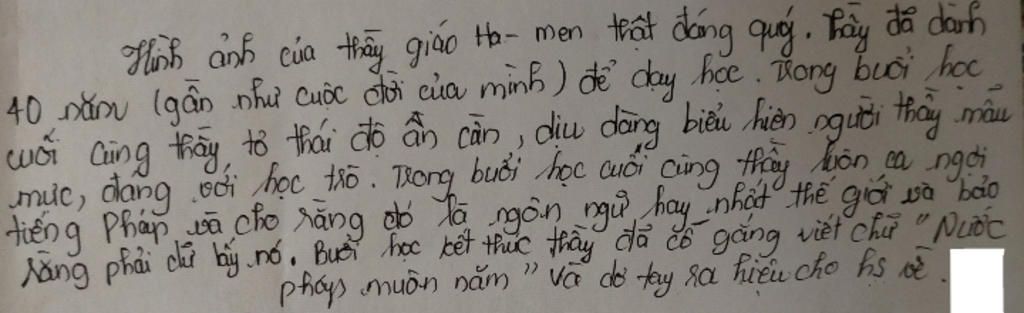 Hình ảnh của thầy giáo Ha-men thật đáng quý. Thầy đã dành
40 năm (gần như cuộc đời của mình) để dạy học. Trong buổi học
cuối cùng thầy tỏ thái độ ân cần, dịu dàng biểu hiện người thầy mẫu
mực, đáng với học trò. Trong buổi học cuối cùng thầy luôn ca ngợi
tiếng Pháp và cho rằng đó là ngôn ngữ hay nhất thế giới và bảo
rằng phải nó. Buổi học kết thúc thầy đã cố gắng viết chữ "Nước
pháp muôn năm" và tay ra hiệu cho hs về.